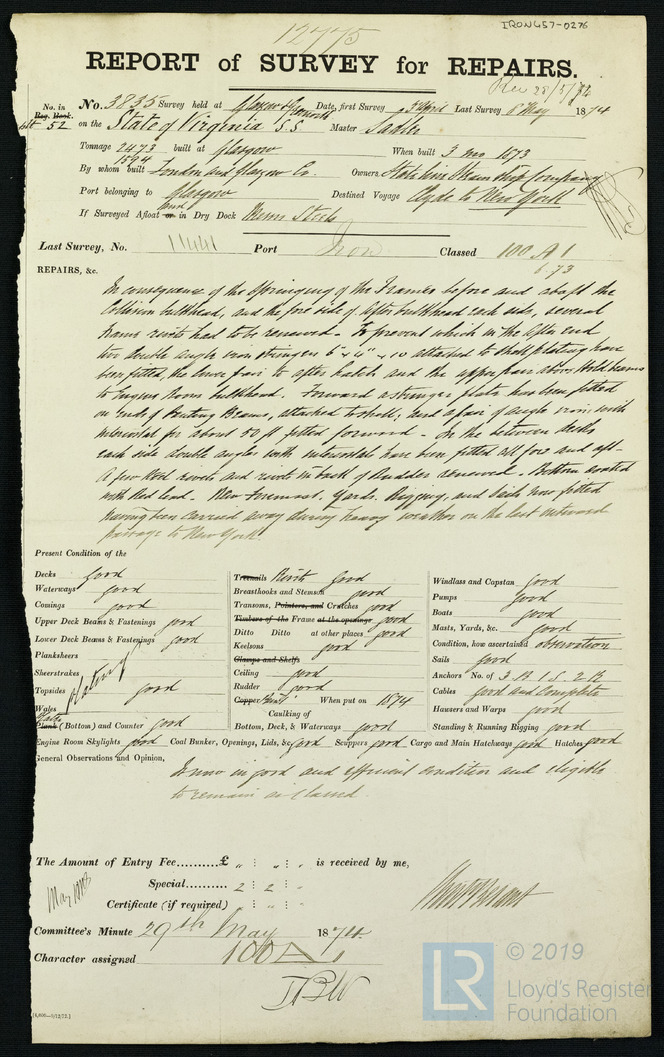 IRON457-0276
12775
REPORT of SURVEY for REPAIRS.
Rec 28/5/74
No. in Reg. Book. No. 3835 Survey held at Glasgow & Greenock Date, first Survey April Last Survey 8 May 1874
52 on the State of Virginia S.S Master Sadler
Tonnage 2473 built at Glasgow When built 3 mo 1873
1594
By whom built London and Glasgow Co. Owners State Line Steam Ship Company
Port belonging to Glasgow Destined Voyage Clyde to New York
If Surveyed Afloat or in Dry Dock
Last Survey, No. 11441 Port Iron Classed 100 A 1
6.73
REPAIRS, &c.
In consequence of the springing of the Frames before and abaft the
Collision bulkhead, and the fore side of After bulkhead each side, several
Frame rivets had to be renewed. To prevent which in the after end
two double angle iron stringers 6 x 4 x 10 attached to shell plating have
been fitted, the lower pair to after hatch and the upper pair above Hold beams
to Engine Room bulkhead. Forward a stringer plate has been fitted
on ends of Panting Beams, attached to shell; and a pair of angle irons with
intercostal for about 50 ft fitted forward. In the between decks
each side double angles with intercostals have been fitted all fore and aft.
A few Keel rivets and rivets in back of Rudder renewed. Bottom coated
with Red lead. New Foremast, Yards, Rigging, and Sails now fitted
having been carried away during heavy weather on the last outward
passage to New York.
Present Condition of the
Decks Good
Waterways good
Comings good
Upper Deck Beams & Fastenings good
Lower Deck Beams & Fastenings good
Planksheers
Sheerstrakes
Topsides good
Wales
plating
Plates Plank (Bottom) and Counter good
Treenails Rivets good
Breasthooks and Stemson good
Transoms, Pointers, and Crutches good
Timbers of the Frame at the openings good
Ditto Ditto at other places good
Keelsons good
Clamps and Shelfs
Ceiling good
Rudder good
Copper Paint When put on 1874
Caulking of
Bottom, Deck, & Waterways good
Windlass and Capstan good
Pumps good
Boats good
Masts, Yards, &c. good
Condition, how ascertained observation
Sails good
Anchors No. of 3 B. 1 S. 2 K
Cables good and complete
Hawsers and Warps good
Standing & Running Rigging good
Engine Room Skylights good Coal Bunker, Openings, Lids, &c, good Scuppers good Cargo and Main Hatchways good Hatches good
General Observations and Opinion,
Is now in good and efficient condition and eligible
to remain as Classed
The Amount of Entry Fee..........£ „ : „ : „ is received by me,
Special.......... 2 : 2 : „
Certificate (if required) „ : „ : „
Committee's Minute 29th May 1874.
Character assigned 100 A 1
© 2019
LR
Lloyd's Register
Foundation